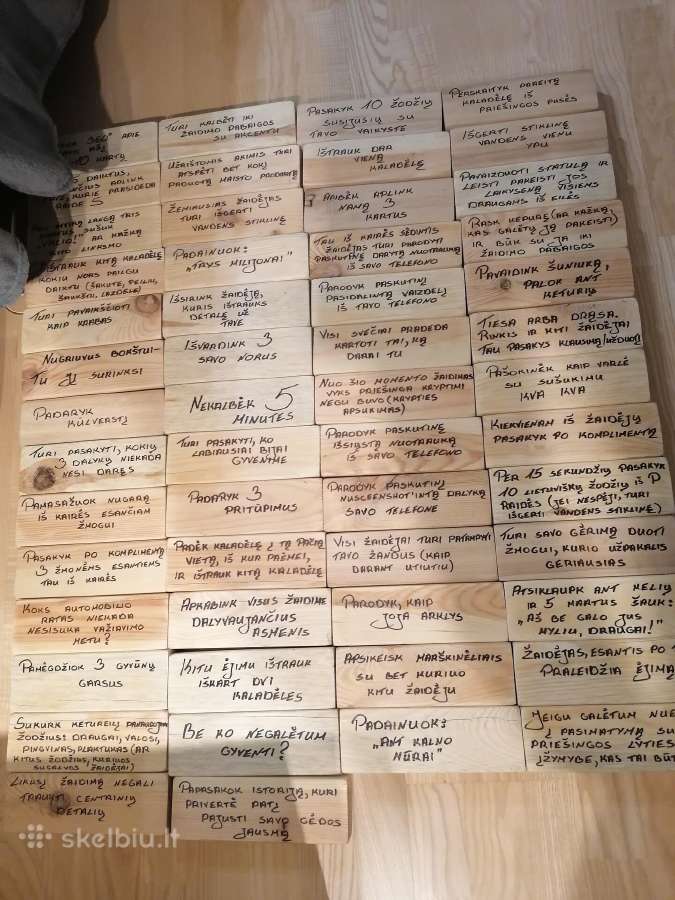 360° APIE
AŠĮ
10 KARTŲ
5 DAIKTUS,
APLINK
KURIE PRASIDEDA
RAIDE S
LANGĄ TRIS
SUŠUK
AR KAŽKĄ
LINKSMO
IŠTRAUK KITĄ KALADĖLĘ
KOKIU NORS PAILGU
DAIKTU (ŠAKUTE, PEILIU,
ŠAUKŠTU, LAZDELE)
TURI PAVAIKŠČIOTI
KAIP KRABAS
NUGRIUVUS BOKŠTUI-
TU JĮ SURINKSI
PADARYK
KŪLVERSTĮ
TURI PASAKYTI, KOKIŲ
3 DALYKŲ NIEKADA
NESI DARĘS
PAMASAŽUOK NUGARĄ
IŠ KAIRĖS ESANČIAM
ŽMOGUI
PASAKYK PO KOMPLIMENTĄ
3 ŽMONĖMS ESANTIEMS
TAU IŠ KAIRĖS
KOKS AUTOMOBILIO
RATAS NIEKADA
NESISUKA VAŽIAVIMO
METU?
PAMĖGDŽIOK 3 GYVŪNŲ
GARSUS
SUKURK KETUREILĮ PANAUDOJAN
ŽODŽIUS: DRAUGAI, VALOSI,
PINGVINAS, PLAKTUKAS (AR
KITUS ŽODŽIUS, KURIUOS
SUGALVOS ŽAIDĖJAI)
LIKUSĮ ŽAIDIMĄ NEGALI
TRAUKTI CENTRINIŲ
DETALIŲ
TURI KALBĖTI IKI
ŽAIDIMO PABAIGOS
SU AKCENTU
UŽRIŠTOMIS AKIMIS TURI
ATSPĖTI BET KOKĮ
PADUOTĄ MAISTO PRODUKTĄ
ŽEMIAUSIAS ŽAIDĖJAS
TURI IŠGERTI
VANDENS STIKLINĘ
PADAINUOK:
„TRYS MILIJONAI"
IŠSIRINK ŽAIDĖJĄ,
KURIS IŠTRAUKS
DETALĘ UŽ
TAVE
IŠVARDINK 3
SAVO NORUS
NEKALBĖK 5
MINUTES
TURI PASAKYTI, KO
LABIAUSIAI BIJAI
GYVENIME
PADARYK 3
PRITŪPIMUS
PADĖK KALADĖLĘ Į TĄ PAČIĄ
VIETĄ, IŠ KUR PAĖMEI,
IR IŠTRAUK KITĄ KALADĖLĘ
APKABINK VISUS ŽAIDIME
DALYVAUJANČIUS
ASMENIS
KITU ĖJIMU IŠTRAUK
IŠKART DVI
KALADĖLES
BE KO NEGALĖTUM
GYVENTI?
PAPASAKOK ISTORIJĄ, KURI
PRIVERTĖ PATĮ
PAJUSTI SAVO GĖDOS
JAUSMĄ
PASAKYK 10 ŽODŽIŲ
SUSIJUSIŲ SU
TAVO VAIKYSTE
IŠTRAUK DAR
VIENĄ
KALADĖLĘ
APIBĖK APLINK
NAMĄ 3
KARTUS
TAU IŠ KAIRĖS SĖDINTIS
ŽAIDĖJAS TURI PARODYTI
PASKUTINĘ DARYTĄ NUOTRAUKĄ
IŠ SAVO TELEFONO
PARODYK PASKUTINĮ
PASIDALINTĄ VAIZDELĮ
IŠ TAVO TELEFONO
VISI SVEČIAI PRADEDA
KARTOTI TAI, KĄ
DARAI TU
NUO ŠIO MOMENTO ŽAIDIMAS
VYKS PRIEŠINGA KRYPTIMI
NEGU BUVO (KRYPTIES
APSUKIMAS)
PARODYK PASKUTINĘ
IŠSIŲSTĄ NUOTRAUKĄ
IŠ SAVO TELEFONO
PARODYK PASKUTINĮ
NUSCEENSHOT'INTĄ DALYKĄ
SAVO TELEFONE
VISI ŽAIDĖJAI TURI PATAMPYTI
TAVO ŽANDUS (KAIP
DARANT UTIUTIU)
PARODYK, KAIP
JOJA ARKLYS
APSIKEISK MARŠKINĖLIAIS
SU BET KURIUO
KITU ŽAIDĖJU
PADAINUOK:
„ANT KALNO
MŪRAI"
PERSKAITYK DARBITĄ
KALADĖLĘ IŠ
PRIEŠINGOS PUSĖS
IŠGERTI STIKLINĘ
VANDENS VIENU
YPU
PAVAIZDUOTI STATULĄ IR
LEISTI PAKEISTI JOS
LAIKYSENĄ VISIEMS
DRAUGAMS IŠ EILĖS
RASK KEPURĘ (AR KAŽKĄ,
KAS GALĖTŲ JĄ PAKEISTI)
IR BŪK SU JA IKI
ŽAIDIMO PABAIGOS
PAVAIDINK ŠUNIUKĄ,
PALOK ANT
KETURIŲ
TIESA ARBA DRĄSA.
RINKIS IR KITI ŽAIDĖJAI
TAU PASAKYS KLAUSIMĄ/UŽDUOTĮ
PAŠOKINĖK KAIP VARLĖ
SU SUŠUKIMU
KVA KVA
KIEKVIENAM IŠ ŽAIDĖJŲ
PASAKYK PO KOMPLIMENTĄ
PER 15 SEKUNDŽIŲ PASAKYK
10 LIETUVIŠKŲ ŽODŽIŲ IŠ P
RAIDĖS (JEI NESPĖJI, TURI
IŠGERTI VANDENS STIKLINĘ)
TURI SAVO GĖRIMĄ DUOTI
ŽMOGUI, KURIO UŽPAKALIS
GERIAUSIAS
ATSIKLAUPK ANT KELIŲ
IR 5 KARTUS ŠAUK:
„AŠ BE GALO JUS
MYLIU, DRAUGAI!"
ŽAIDĖJAS, ESANTIS PO
PRALEIDŽIA ĖJIMĄ
JEIGU GALĖTUM NUE
Į PASIMATYMĄ SU
PRIEŠINGOS LYTIES
ĮŽYMYBE, KAS TAI BŪT
skelbiu.lt